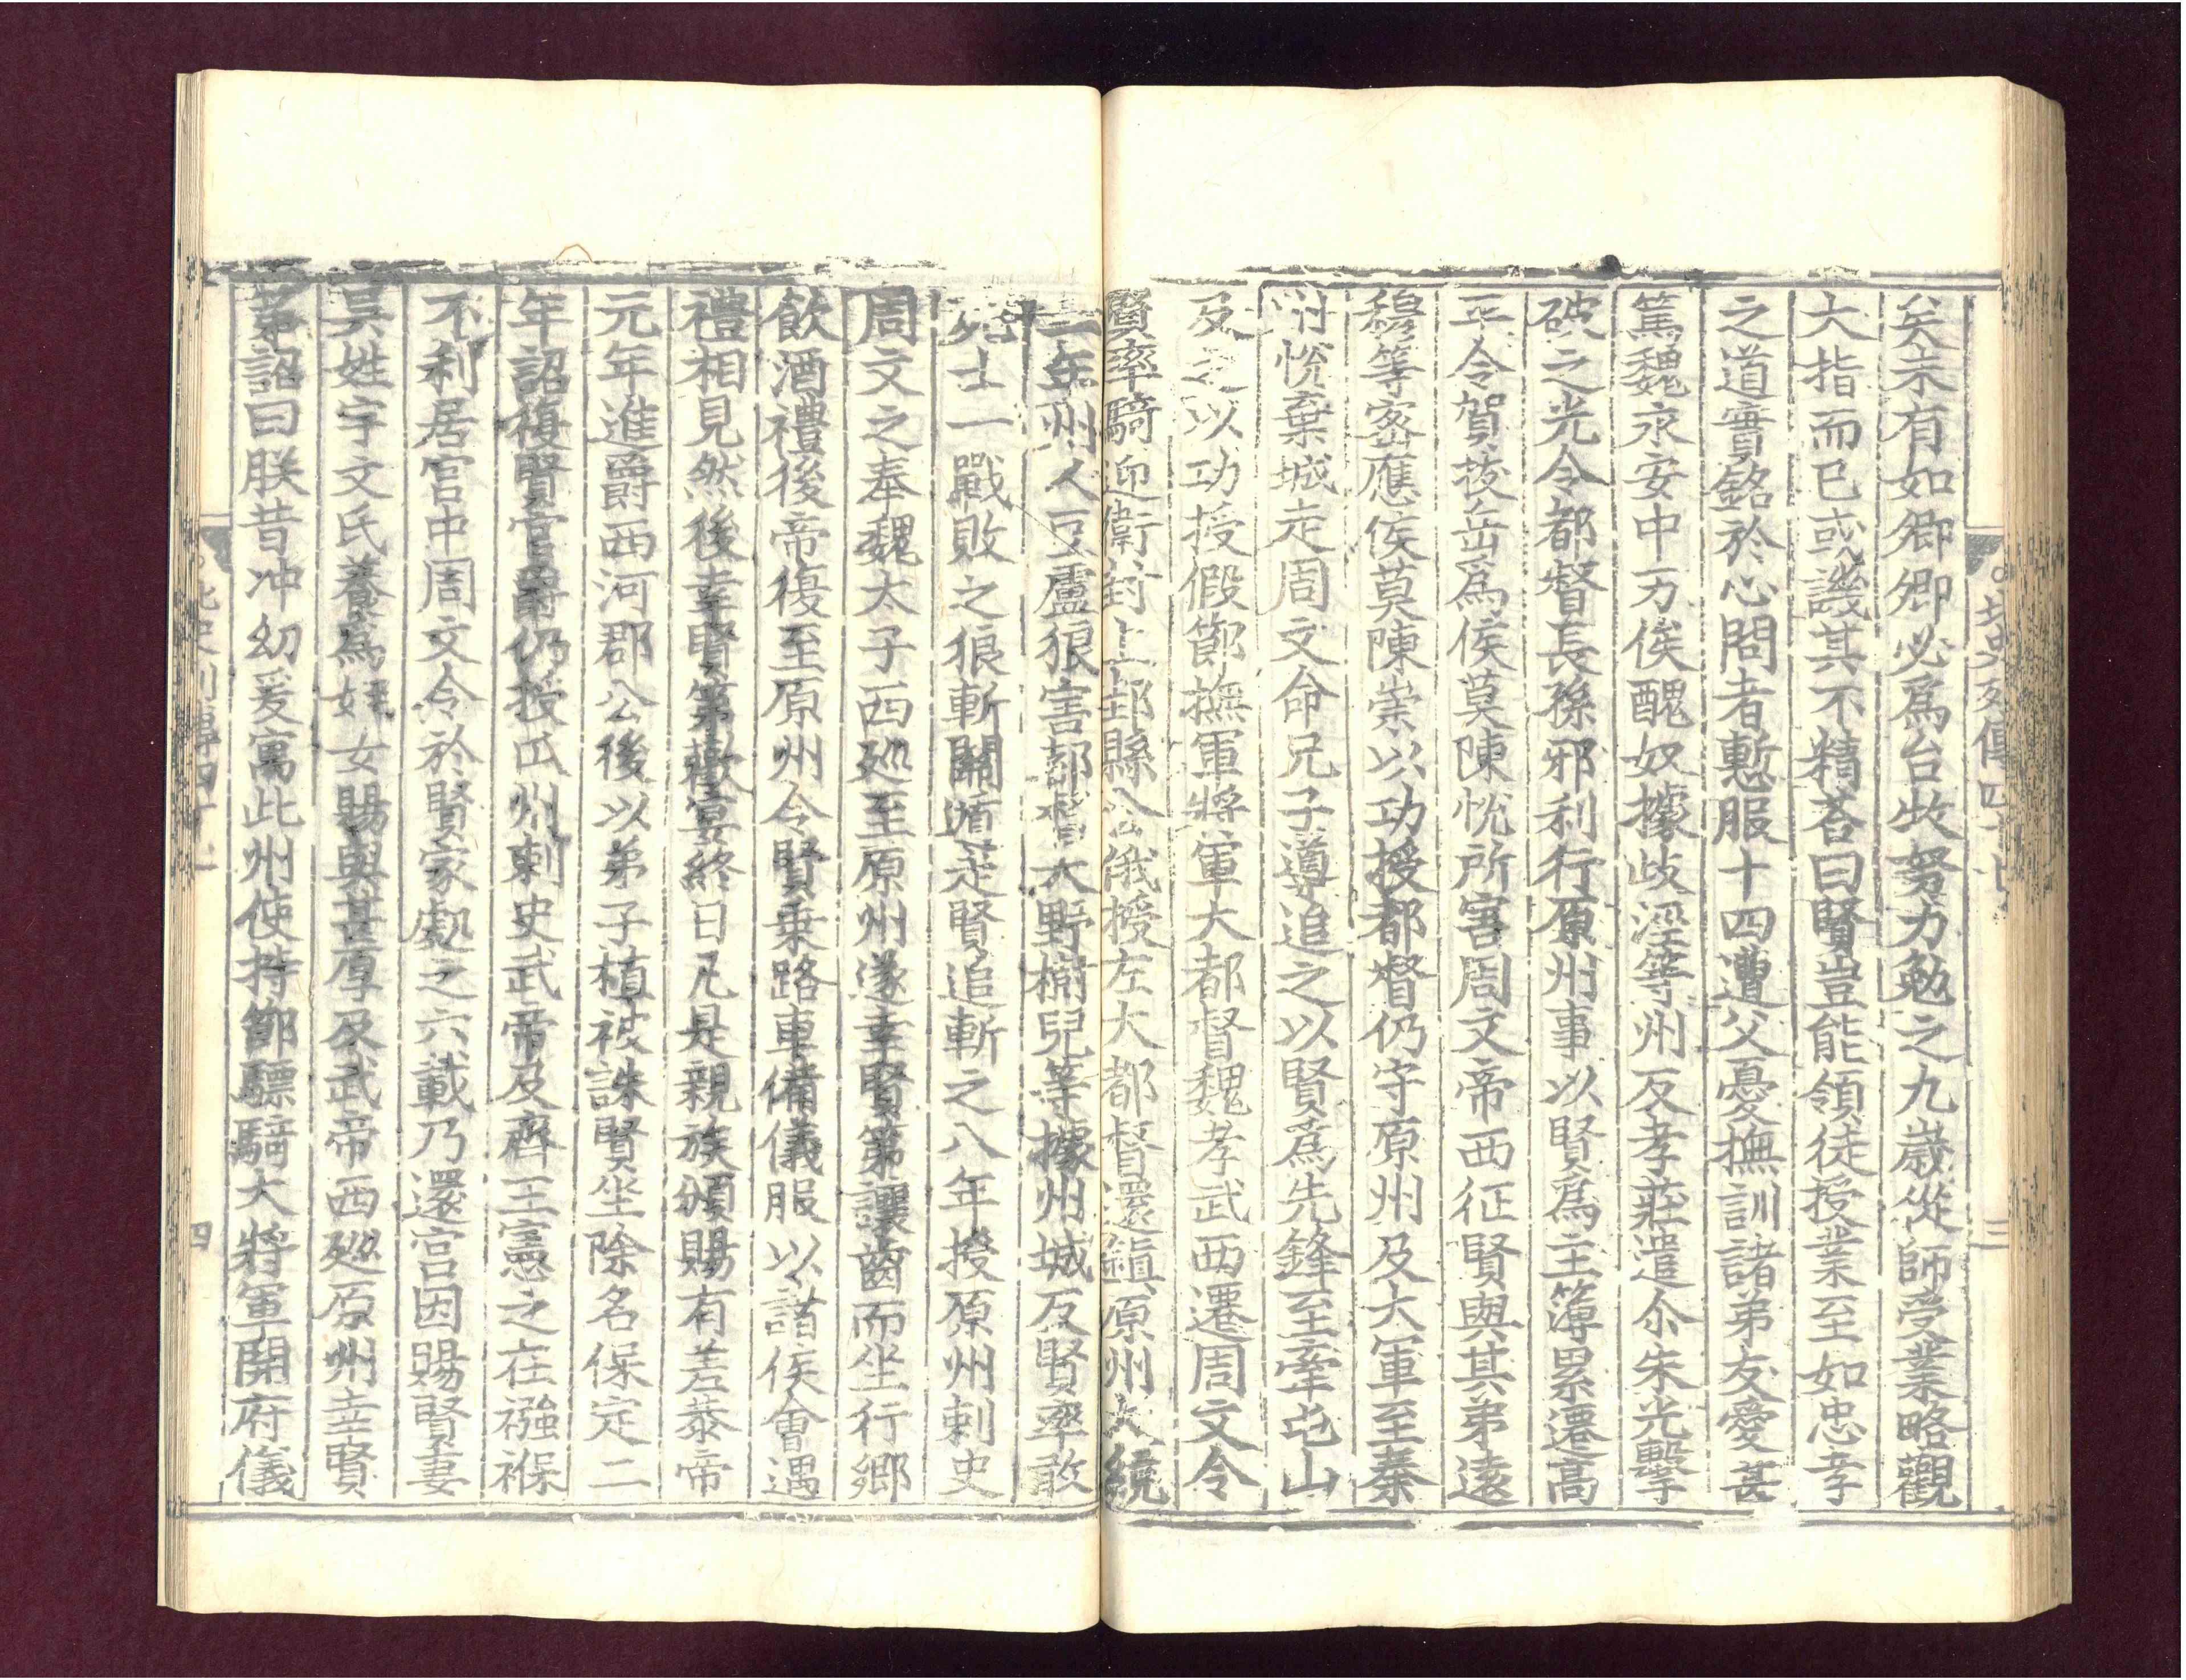 北史列傳四十七
三
矣未有如卿卿必爲台牧努力勉之九歲從師受業略觀
大指而已或譏其不精荅曰賢豈能領徒授業至如忠孝
之道實銘於心問者慙服十四遭父憂撫訓諸弟友愛甚
篤魏永安中万俟醜奴據歧涇等州反孝莊遣尒朱光擊
破之光令都督長孫邪利行原州事以賢爲主簿累遷高
平令賀拔岳爲侯莫陳悅所害周文帝西征賢與其弟遠
穆等密應侯莫陳崇以功授都督仍守原州及大軍至秦
州悅棄城走周文命兄子導追之以賢爲先鋒至牽屯山
及之以功授假節撫軍將軍大都督魏孝武西遷周文令
賢率騎迎衛封上邽縣公俄授左大都督還鎮原州大統
二年州人豆盧狼害都督大野樹兒等據州城反賢率敢
死士一戰敗之狼斬關遁走賢追斬之八年授原州刺史
周文之奉魏太子西廵至原州遂幸賢第讓齒而坐行鄉
飲酒禮後帝復至原州令賢乗路車備儀服以諸侯會遇
禮相見然後幸賢第歡宴終日凡是親族頒賜有差恭帝
元年進爵西河郡公後以弟子植被誅賢坐除名保定二
年詔復賢官爵仍授瓜州刺史武帝及齊王憲之在襁褓
不利居宮中周文令於賢家處之六載乃還宮因賜賢妻
吴姓宇文氏養爲姪女賜與甚厚及武帝西廵原州幸賢
第詔曰朕昔冲幼爰寓此州使持節驃騎大將軍開府儀
北史列傳四十七
四